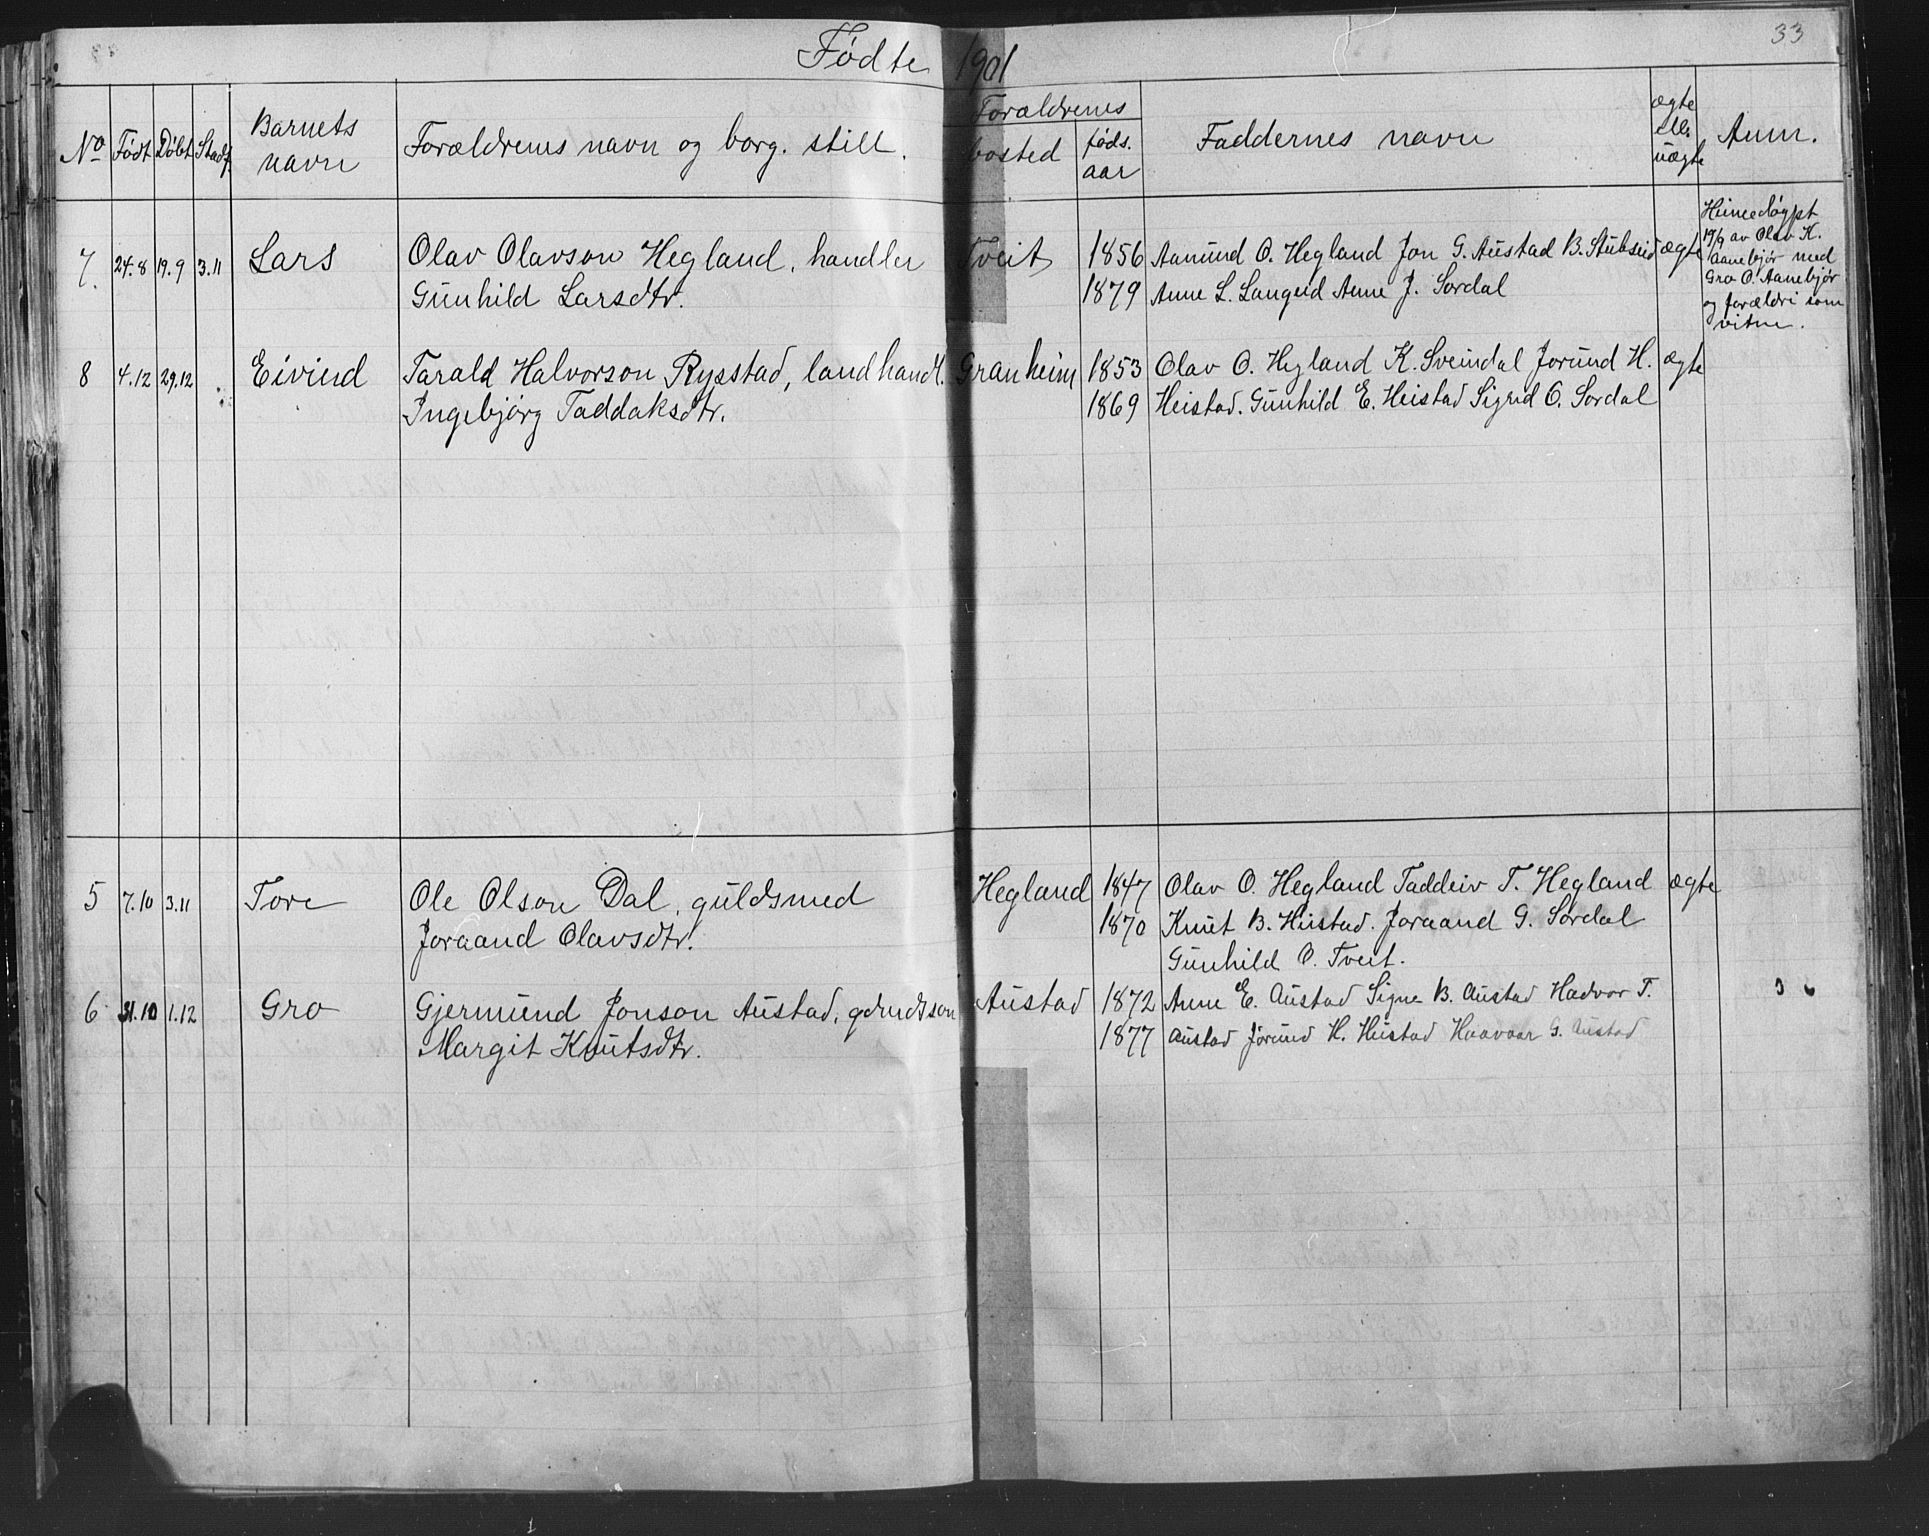 33
Fødte 1901
No Født Døbt Stadf. Barnets navn Forældrenes navn og borg. still. Forældrenes bosted føds. aar Faddernes navn ægte ell. uægte Anm.
7. 24.8 19.9 3.11 Lars Olav Olavson Hegland, handler Tveit 1856 Aamund O. Hegland Jon G. Austad B. Stubseid ægte
Gunhild Larsdtr. 1879 Anne L. Langeid Anne J. Sordal
Heimedøypt
19/9 av Olav K.
Aanebjør med
Gro O. Aanebjør
og forældri som
vitne.
8 4.12 29.12 Eivind Tarald Halvorson Rysstad, landhandl. Granheim 1853 Olav O. Hegland K. Sveindal Jorund H. ægte
Ingebjørg Taddaksdtr. 1869 Heistad. Gunhild E. Heistad Sigrid O. Sordal
5 7.10 3.11 Tore Ole Olson Dal, guldsmed Hegland 1847 Olav O. Hegland Taddeiv T. Hegland ægte
Joraand Olavsdtr. 1870 Knut B. Heistad. Joraand G. Sordal
Gunhild O. Tveit.
6 31.10 1.12 Gro Gjermund Jonson Austad, grdmdsson Austad 1872 Anne E. Austad Signe B. Austad Hadvor T.
Margit Knutsdtr. 1877 Austad Jorund H. Heistad Haavaar G. Austad